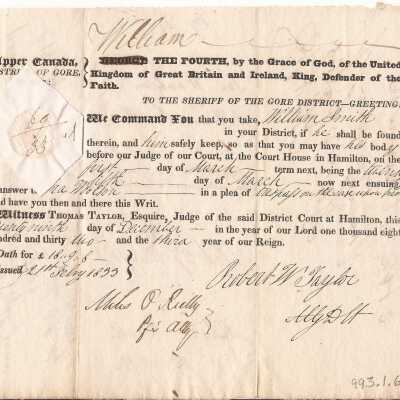 William
Upper Canada, } GEORGE THE FOURTH, by the Grace of God, of the United
DISTRICT OF GORE. Kingdom of Great Britain and Ireland, King, Defender of the
Faith.
TO THE SHERIFF OF THE GORE DISTRICT—GREETING:
We Command You that you take, William Smith
in your District, if he shall be found
therein, and him safely keep, so as you may have his body
before our Judge of our Court, at the Court House in Hamilton, on the
first day of March term next, being the
day of March now next ensuing,
answer to in a plea of Trespass on the case upon pro
and have you then and there this Writ.
Witness THOMAS TAYLOR, Esquire, Judge of the said District Court at Hamilton, this
twenty ninth day of December in the year of our Lord one thousand eight
hundred and thirty two and third year of our Reign.
Oath for £ 18.9.6
Issued 21st Feby 1833
Robert W Taylor
Miles O Reilly
Pfs Atty
Clk D Ct
993.1.6